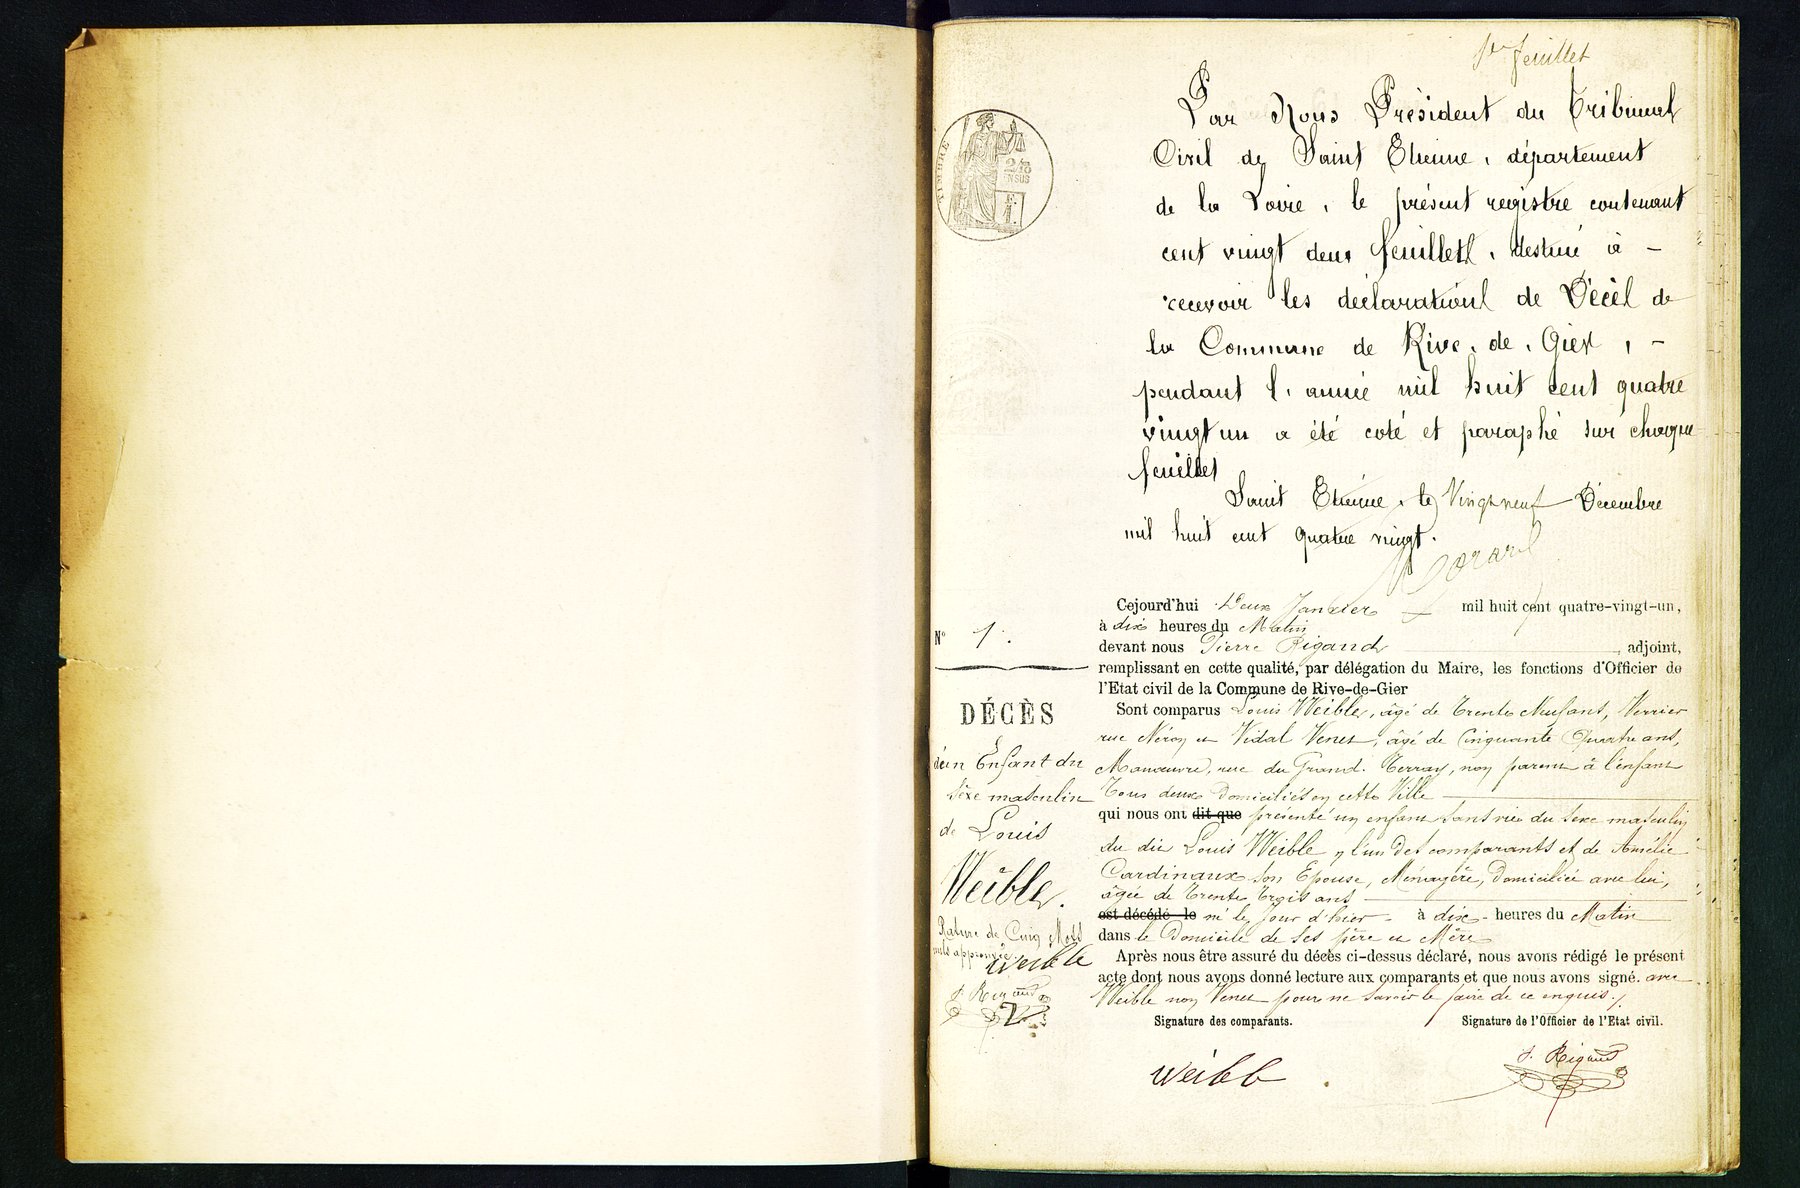 1er feuillet
Par Nous Président du Tribunal
Civil de Saint Etienne, département
de la Loire, le présent registre contenant
cent vingt deux feuillets, destiné à -
recevoir les déclarations de Décès de
la Commune de Rive-de-Gier, -
pendant l'année mil huit cent quatre
vingt un a été coté et paraphé sur chaque
feuillet
Saint Etienne, le Vingt neuf Décembre
mil huit cent quatre vingt.
TIMBRE
2/10
EN SUS
Cejourd'hui Deux Janvier mil huit cent quatre-vingt-un,
à dix heures du Matin
devant nous Pierre Rigaud, adjoint,
remplissant en cette qualité, par délégation du Maire, les fonctions d'Officier de
l'Etat civil de la Commune de Rive-de-Gier
Sont comparus Louis Weible, âgé de Trente Neuf ans, Verrier
rue Néron et Vidal Venet, âgé de Cinquante Quatre ans,
Manœuvre, rue du Grand. Terray, non parent à l'enfant
Tous deux Domiciliés en cette Ville
qui nous ont dit que présenté un enfant sans vie du sexe masculin
du dit Louis Weible, l'un des comparants et de Amélie
Cardinaux son Epouse, Ménagère, Domiciliée avec lui,
âgée de Trente Trois ans
est décédé le né le jour d'hier - à dix - heures du Matin
dans le Domicile de ses père et Mère
Après nous être assuré du décès ci-dessus déclaré, nous avons rédigé le présent
acte dont nous avons donné lecture aux comparants et que nous avons signé. avec
Weible non Venet pour ne savoir le faire de ce enquis.
Signature des comparants.
Signature de l'Officier de l'Etat civil.
Weibl
P. Rigaud
N° 1.
DÉCÈS
d'un Enfant du
sexe masculin
de Louis
Weible.
Rature de Cinq Mots
nuls approuvée.
Weible
P. Rigaud